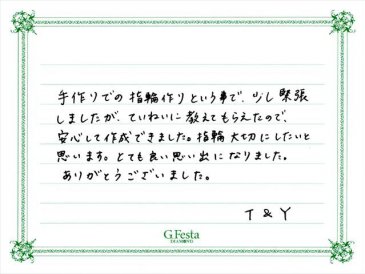 手作りでの指輪作りという事で、少し緊張
しましたが、ていねいに教えてもらえたので、
安心して作成できました。指輪大切にしたいと
思います。とても良い思い出になりました。
ありがとうございました。
T & Y
G.Festa
DIAMOND